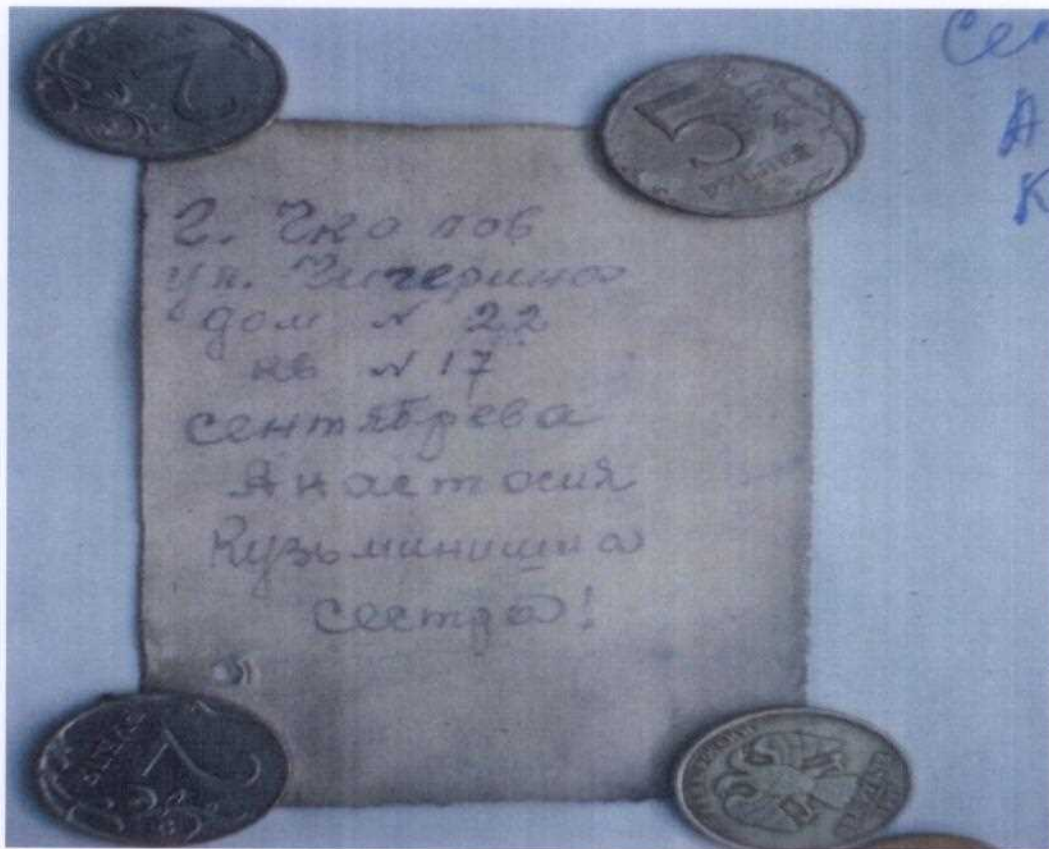 г. Чкалов
ул. Чичерина
дом № 22
кв № 17
сентябрева
Анастасия
Кузьминишна
сестра!
Сен
А
К
2
5
РУБЛЕЙ
2